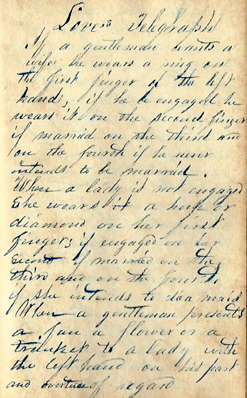 Loves Telegraph
If a gentleman wants a
wife, he wears a ring on
the first finger of the left
hand, if he be engaged he
wears it on the second finger
if married on the third and
on the fourth if he never
intends to be married.
When a lady is not engaged
She wears a hoop or
diamond on her first
finger, if engaged on her
second if married on the
third and on the fourth
if she intends to die a maid
When a gentleman presents
a fan a flower or a
trinket to a lady with
the left hand on his part
and overture of regard